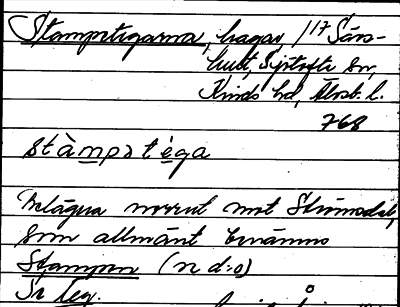 Stampstegarna, hagar /17 Särs-
hult, Sjötofta sn,
Kinds hd, Älvsb. l.
768
stàmpstéga
Belägna norrut mot Strömsdal,
som allmänt benämns
Stampen (n d:o)
Sr teg.